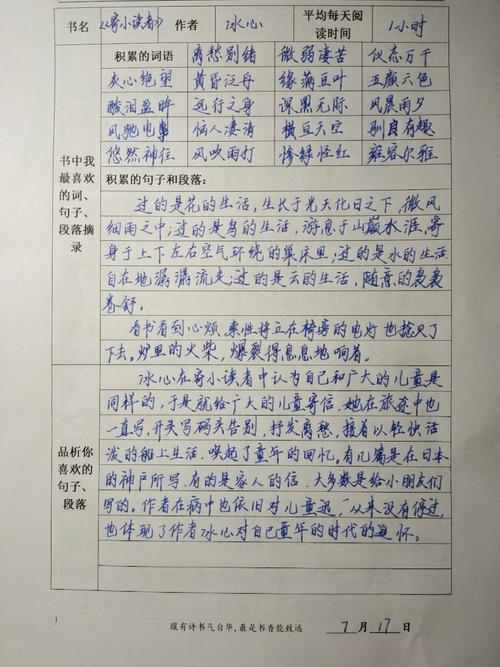 书名 《寄小读者》 作者 冰心 平均每天阅读时间 1小时
积累的词语 离愁别绪 微弱凄苦 仪态万千
灰心绝望 黄昏泛舟 缘满豆叶 五颜六色
酸泪盈眸 远行之身 深黑无际 风晨雨夕
风驰电掣 恼人凄清 横亘天空 驯良有趣
悠然神往 风吹雨打 惨绿怪红 雍容尔雅
书中我最喜欢的词、句子、段落摘录
积累的句子和段落:
过的是花的生活,生长于光天化日之下,微风
细雨之中;过的是鸟的生活,游息于山巅水涯,寄
身于上下左右空气环绕的巢床里;过的是水的生活,
自在地潺潺流走;过的是云的生活,随意的袅袅
卷舒。
有书看到心烦,索性将立在椅旁的电灯也捻灭了
下去。炉里的火柴,爆裂得息息地响着。
品析你喜欢的句子、段落
冰心在寄小读者中认为自己和广大的儿童是
同样的,于是就给广大的儿童寄信,她在旅途中也
一直写,开头写码头告别,抒发离愁,接着以轻快活
泼的船上生活,唤起了童年的回忆,有几篇是在日本
的神户所写,有的是家人的信,大多数是给小朋友们
写的。作者在病中也依旧对儿童,从来没有停过,
也体现了作者冰心对自己童年的时代的追怀。
腹有诗书气自华,最是书香能致远
7月17日